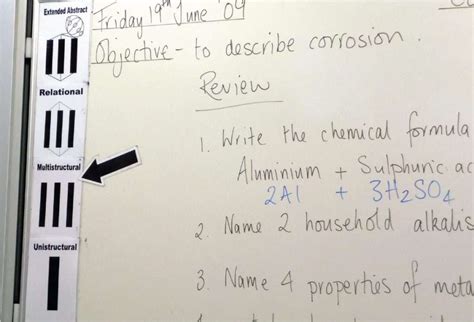 Extended Abstract
Relational
Multistructural
Unistructural
Friday 19th June '09
Objective - to describe corrosion.
Review
1. Write the chemical formula
Aluminium + Sulphuric ac
2Al + 3H2SO4
2. Name 2 household alkalis
3. Name 4 properties of meta